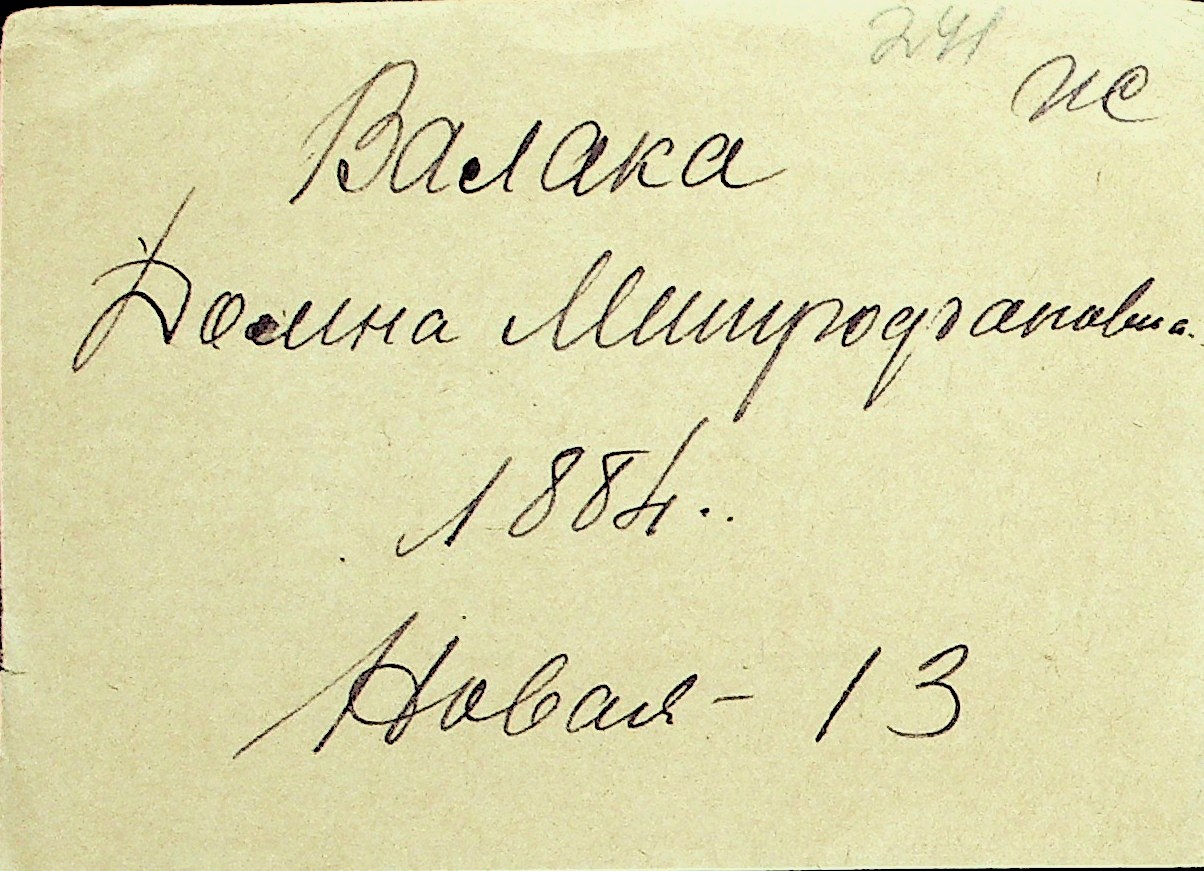 241 ис
Валака
Домна Митродғановна.
1884..
Новая - 13